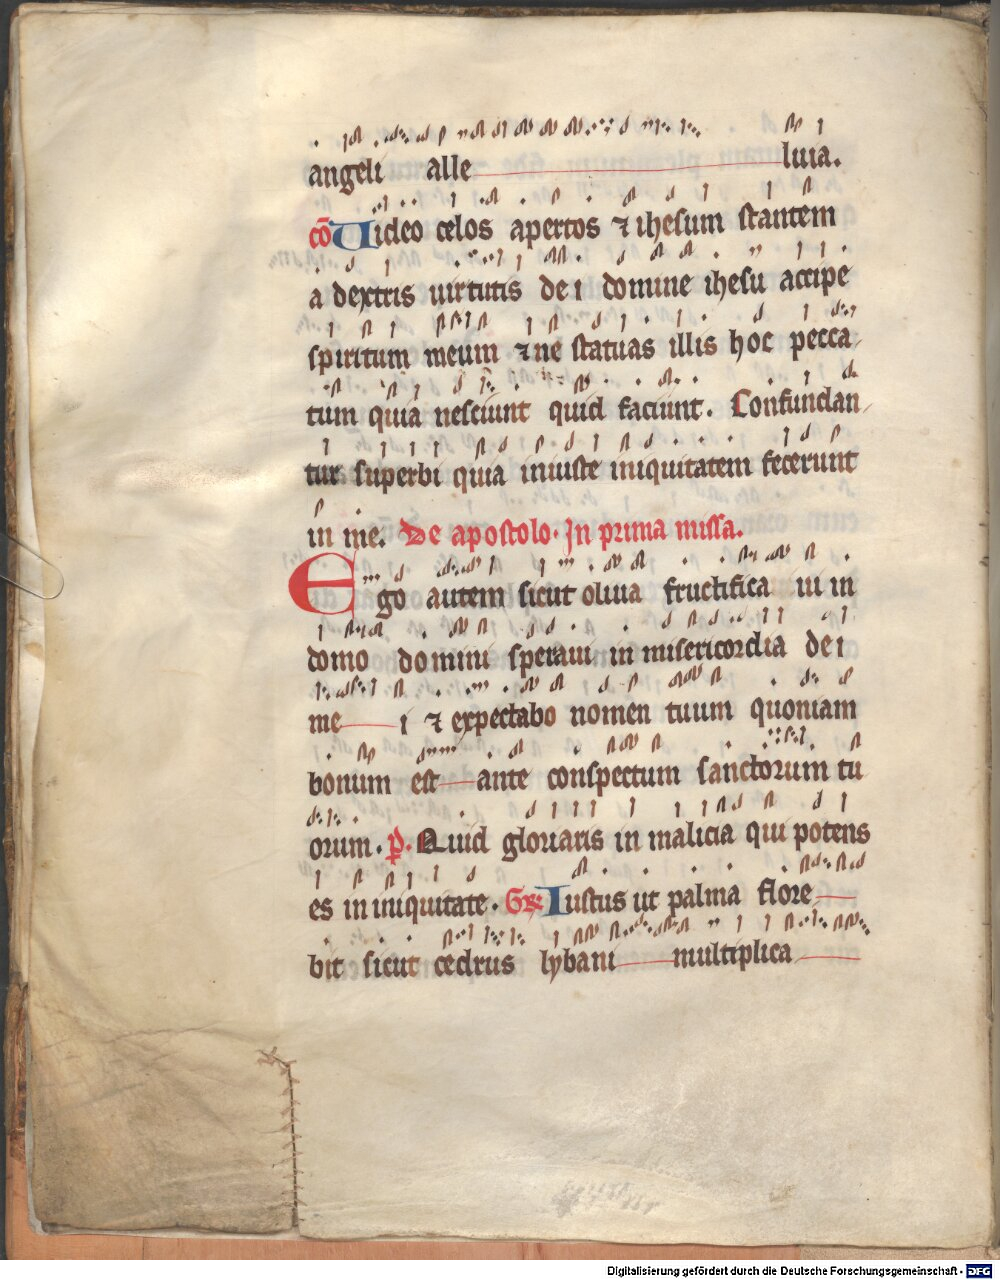 angeli alle luia.
cō Uideo celos apertos ⁊ ihesum stantem
a dextris uirtutis dei domine ihesu accipe
spiritum meum ⁊ ne statuas illis hoc pecca
tum quia nesciunt quid faciunt. Confundan
tur superbi quia iniuste iniquitatem fecerunt
in me. De apostolo. In prima missa.
Ego autem sicut oliua fructifica ui in
domo domini speraui in misericordia dei
me i ⁊ expectabo nomen tuum quoniam
bonum est ante conspectum sanctorum tu
orum. p̄. Quid gloriaris in malicia qui potens
es in iniquitate. Gr. Iustus ut palma flore
bit sicut cedrus lybani multiplica
Digitalisierung gefördert durch die Deutsche Forschungsgemeinschaft - DFG